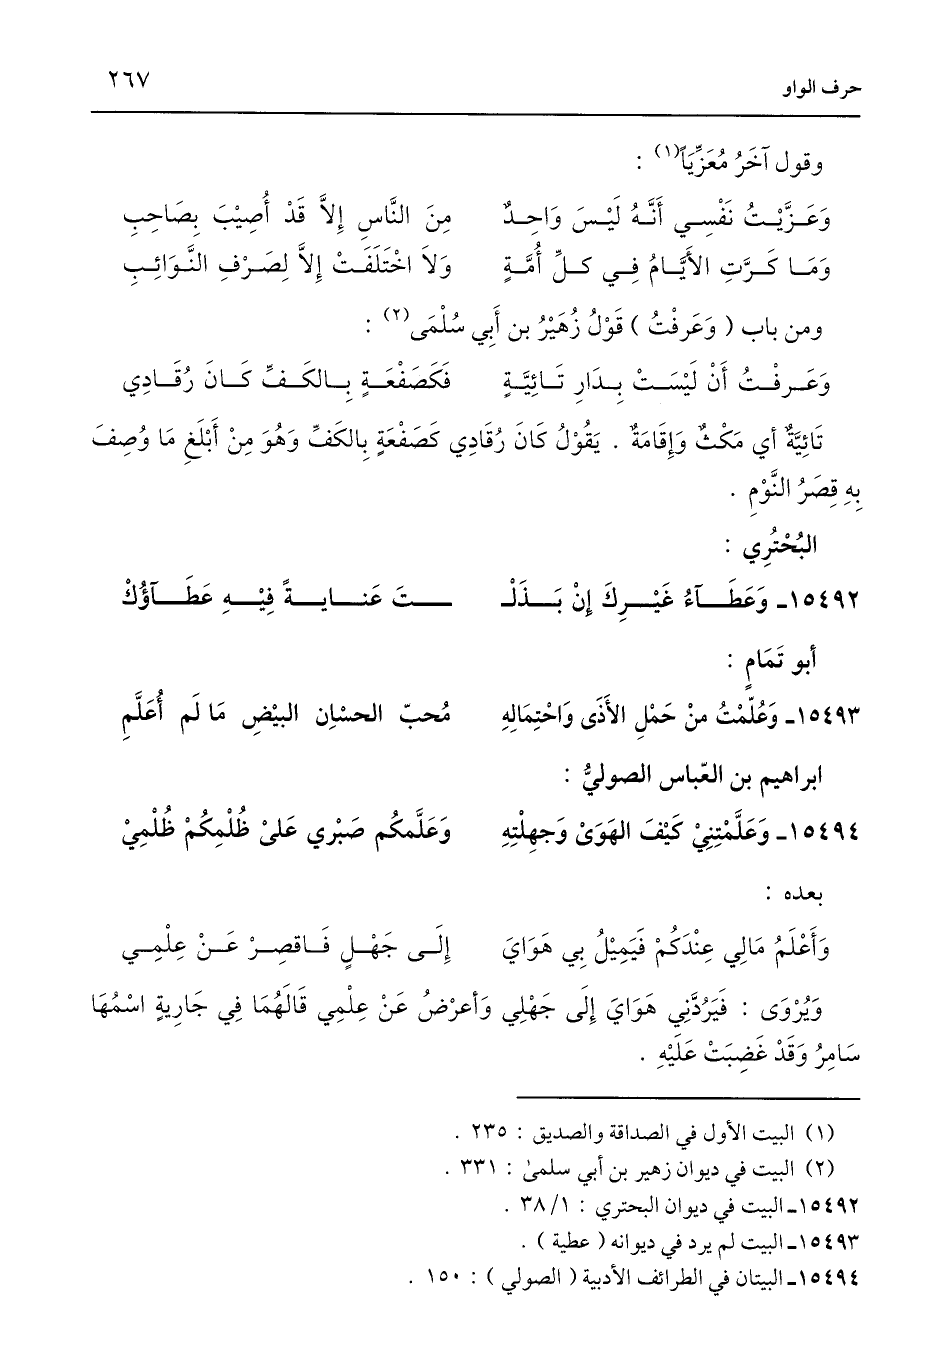 حرف الواو ٢٦٧
وقول آخَرُ مُعَزِّيَاً(١) :
وَعَزَّيْتُ نَفْسِي أَنَّهُ لَيْسَ وَاحِدٌ مِنَ النَّاسِ إِلاَّ قَدْ أُصِيْبَ بِصَاحِبِ
وَمَا كَرَّتِ الأَيَّامُ فِي كلِّ أُمَّةٍ وَلاَ اخْتَلَفَتْ إِلاَّ لِصَرْفِ النَّوَائِبِ
ومن باب ( وَعَرفْتُ ) قَوْلُ زُهَيْرُ بن أَبِي سُلْمَى(٢) :
وَعَرفْتُ أَنْ لَيْسَتْ بِدَارِ تَائِيَّةٍ فَكَصَفْعَةٍ بِالكَفِّ كَانَ رُقَادِي
تَائِيَّةٌ أي مَكْثٌ وَإِقَامَةٌ . يَقُوْلُ كَانَ رُقَادِي كَصَفْعَةٍ بِالكَفِّ وَهُوَ مِنْ أَبْلَغِ مَا وُصِفَ
بِهِ قِصَرُ النَّوْمِ .
البُحْتُرِي :
١٥٤٩٢ـ وَعَطَآءُ غَيْرِكَ إِنْ بَذَلْـ ـتَ عَنايةً فِيْهِ عَطَاؤُكْ
أبو تَمَامٍ :
١٥٤٩٣ـ وَعُلِّمْتُ منْ حَمْلِ الأَذَى وَاحْتِمَالِهِ مُحبّ الحسْانِ البيْضِ مَا لَم أُعَلَّمِ
ابراهيم بن العبّاس الصوليُّ :
١٥٤٩٤ـ وَعَلَّمْتِنِيْ كَيْفَ الهَوَىْ وَجهِلْتِهِ وَعَلَّمكُم صَبْرِي عَلىْ ظُلْمِكُمْ ظُلْمِيْ
بعده :
وَأَعْلَمُ مَالِي عِنْدَكُمْ فَيَمِيْلُ بِي هَوَايَ إِلَى جَهْلٍ فَاقصِرْ عَنْ عِلْمِي
وَيُرْوَى : فَيَرُدَّنِي هَوَايَ إِلَى جَهْلِي وَأعرْضُ عَنْ عِلْمِي قَالَهُمَا فِي جَارِيةٍ اسْمُهَا
سَامِرُ وَقَدْ غَضِبَتْ عَلَيْهِ .
(١) البيت الأول في الصداقة والصديق : ٢٣٥ .
(٢) البيت في ديوان زهير بن أبي سلمىٰ : ٣٣١ .
١٥٤٩٢ـ البيت في ديوان البحتري : ٣٨/١ .
١٥٤٩٣ـ البيت لم يرد في ديوانه ( عطية ) .
١٥٤٩٤ـ البيتان في الطرائف الأدبية ( الصولي ) : ١٥٠ .